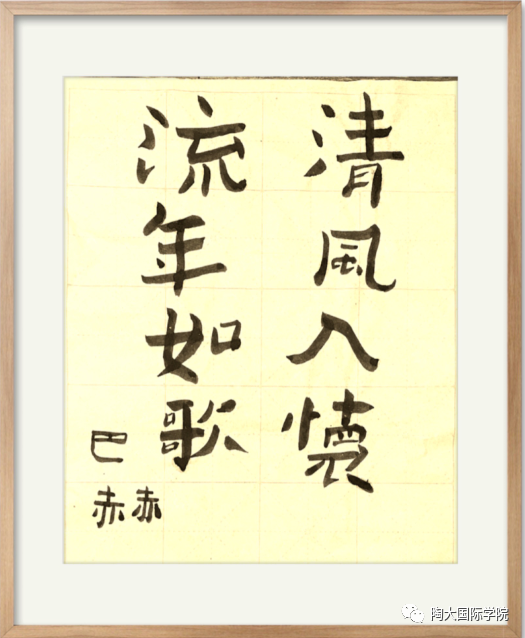 清風入懷
流年如歌
巴
赫赫
陶大国际学院